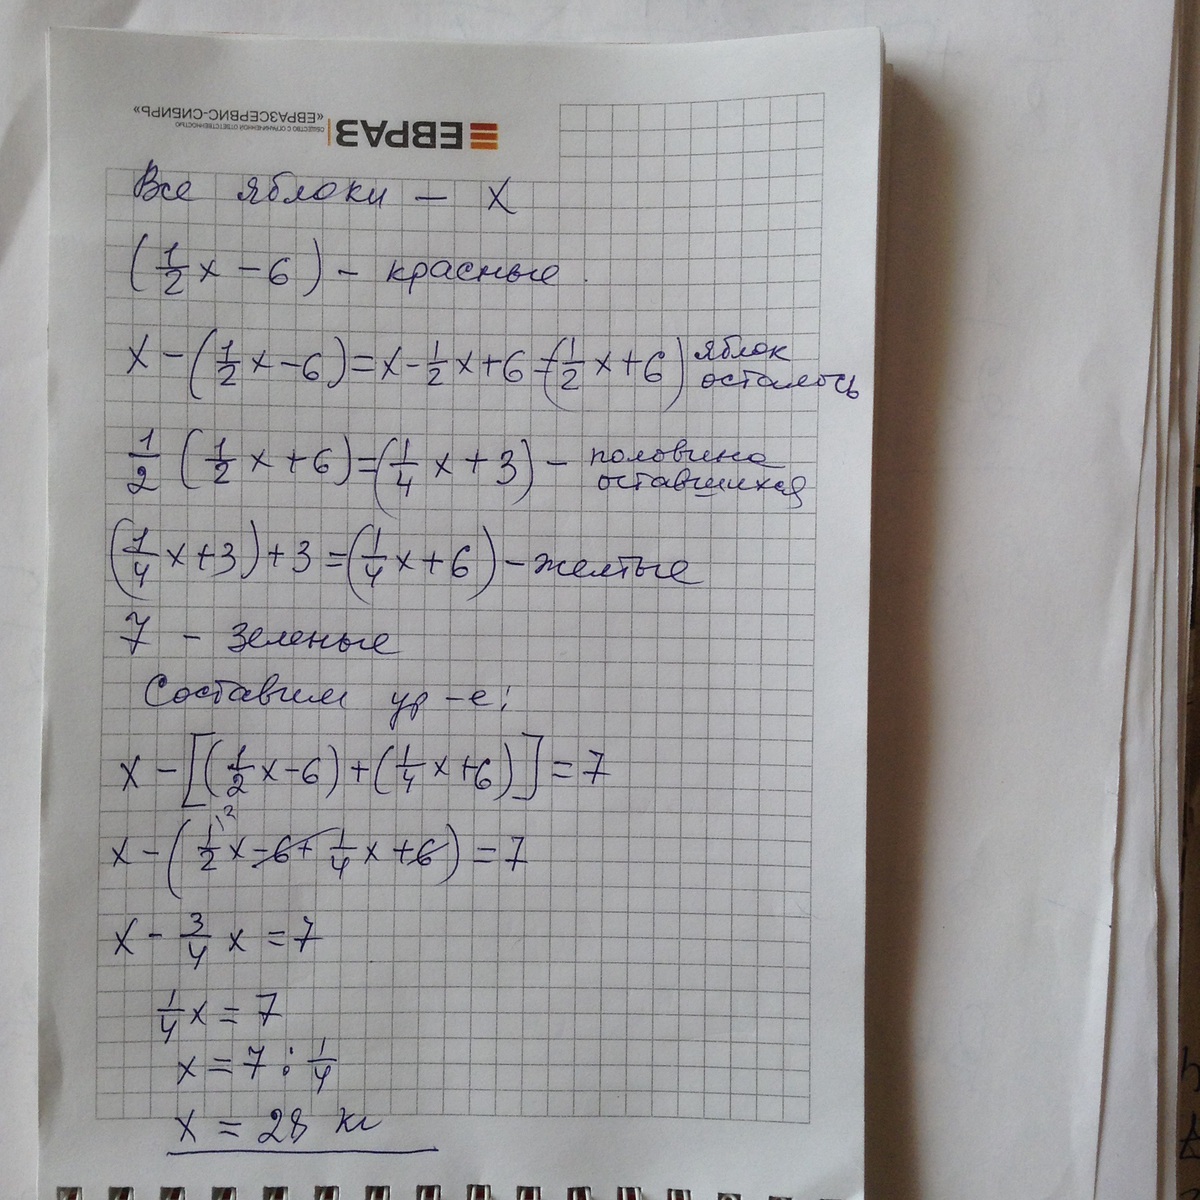 «ЕВРАЗСЕРВИС-СИБИРЬ»
ОБЩЕСТВО С ОГРАНИЧЕННОЙ ОТВЕТСТВЕННОСТЬЮ
ЕВРАЗ
Все яблоки — х
(1/2 х - 6) - красные.
х - (1/2 х - 6) = х - 1/2 х + 6 = (1/2 х + 6) яблок осталось
1/2 (1/2 х + 6) = (1/4 х + 3) - половина оставшихся
(1/4 х + 3) + 3 = (1/4 х + 6) - желтые
7 - зеленые
Составим ур-е:
х - [(1/2 х - 6) + (1/4 х + 6)] = 7
х - (1/2 х - 6 + 1/4 х + 6) = 7
х - 3/4 х = 7
1/4 х = 7
х = 7 : 1/4
х = 28 кг